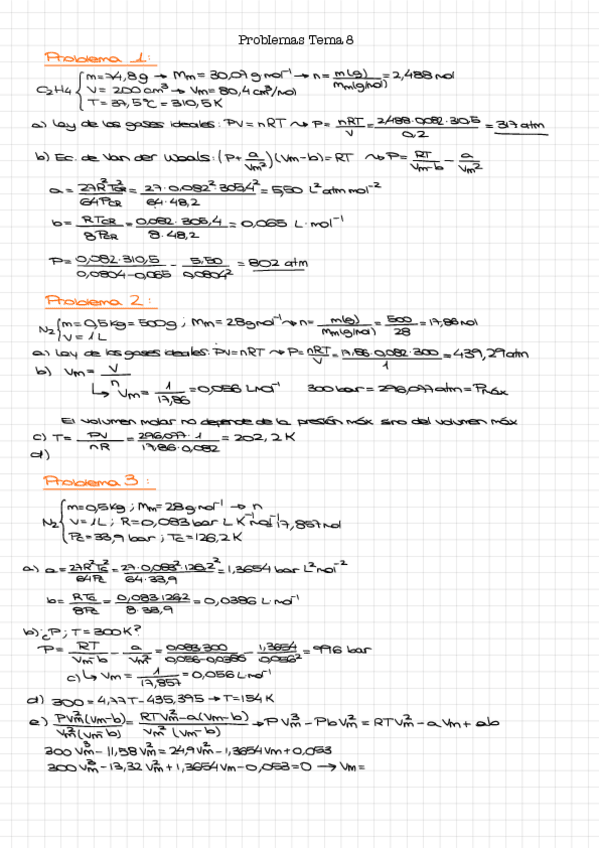 Problemas Tema 8
Problema 1:
C₂H₄ { m=74,8g → Mm = 30,07 g mol⁻¹ → n = m(g)/Mm(g/mol) = 2,488 mol
V = 200 cm³ → Vm = 80,4 cm³/mol
T = 37,5ºC = 310,5 K
a) Ley de los gases ideales: PV = nRT → P = nRT/V = 2,488·0,082·310,5/0,2 = 317 atm
b) Ec. de Van der Waals: (P + a/Vm²)(Vm-b) = RT → P = RT/Vm-b - a/Vm²
a = 27R²T²CR/64PCR = 27·0,082²·305,4²/64·48,2 = 5,50 L² atm mol⁻²
b = RTCR/8PCR = 0,082·305,4/8·48,2 = 0,065 L·mol⁻¹
P = 0,082·310,5/0,0804-0,065 - 5,50/0,0804² = 802 atm
Problema 2:
N₂ { m = 0,5 kg = 500g ; Mm = 28 g mol⁻¹ → n = m(g)/Mm(g/mol) = 500/28 = 17,86 mol
V = 1L
a) Ley de los gases ideales: PV = nRT → P = nRT/V = 17,86·0,082·300/1 = 439,29 atm
b) Vm = V/n
↳ Vm = 1/17,86 = 0,056 L mol⁻¹ 300 bar = 296,077 atm = Pmáx
El volumen molar no depende de la presión máx sino del volumen máx
c) T = PV/nR = 296,077·1/17,86·0,082 = 202,2 K
d)
Problema 3:
N₂ { m = 0,5 kg ; Mm = 28 g mol⁻¹ → n
V = 1L ; R = 0,083 bar L K⁻¹ mol⁻¹ 17,857 mol
Pc = 33,9 bar ; Tc = 126,2 K
a) a = 27R²Tc²/64Pc = 27·0,083²·126,2²/64·33,9 = 1,3654 bar L² mol⁻²
b = RTc/8Pc = 0,083·126,2/8·33,9 = 0,0386 L·mol⁻¹
b) ¿P ; T = 300 K?
P = RT/Vm-b - a/Vm² = 0,083·300/0,056-0,0386 - 1,3654/0,056² = 996 bar
c) ↳ Vm = 1/17,857 = 0,056 L mol⁻¹
d) 300 = 4,77T - 435,395 → T = 154 K
e) PVm²(Vm-b)/Vm²(Vm-b) = RTVm²-a(Vm-b)/Vm²(Vm-b) → PVm³ - PbVm² = RTVm² - aVm + ab
300 Vm³ - 11,58 Vm² = 24,9Vm² - 1,3654Vm + 0,053
300 Vm³ - 13,32 Vm² + 1,3654 Vm - 0,053 = 0 → Vm =